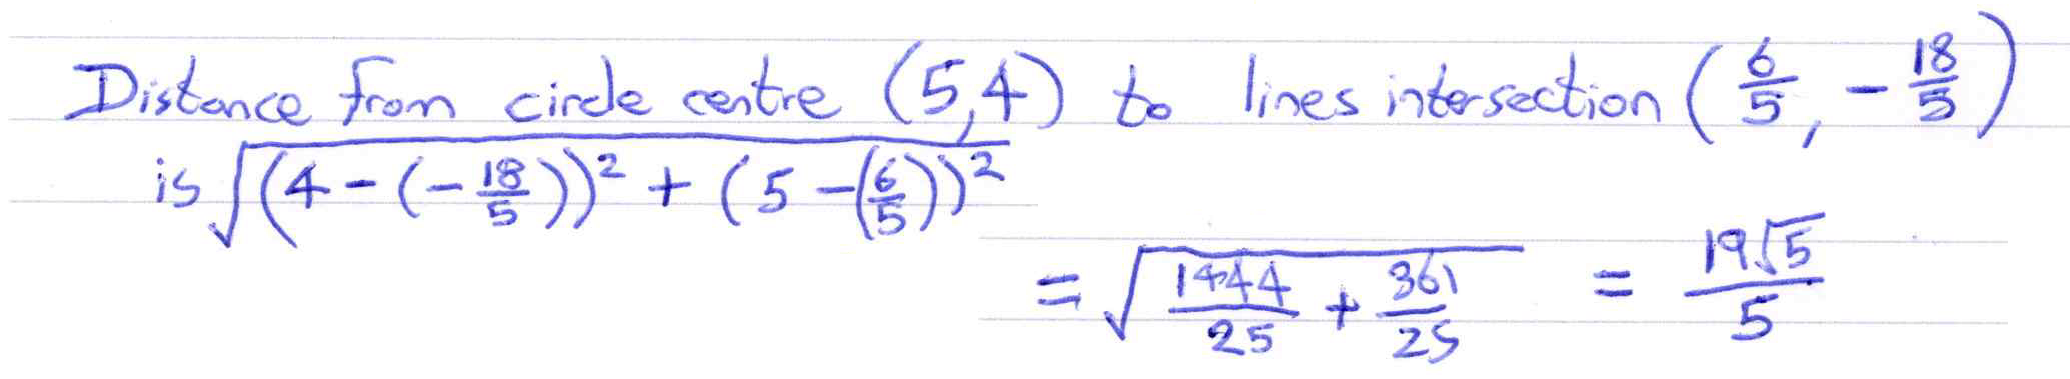 Distance from circle centre (5,4) to lines intersection (6/5, -18/5)
is √((4-(-18/5))² + (5-(6/5))²)
= √(1444/25 + 361/25) = 19√5/5